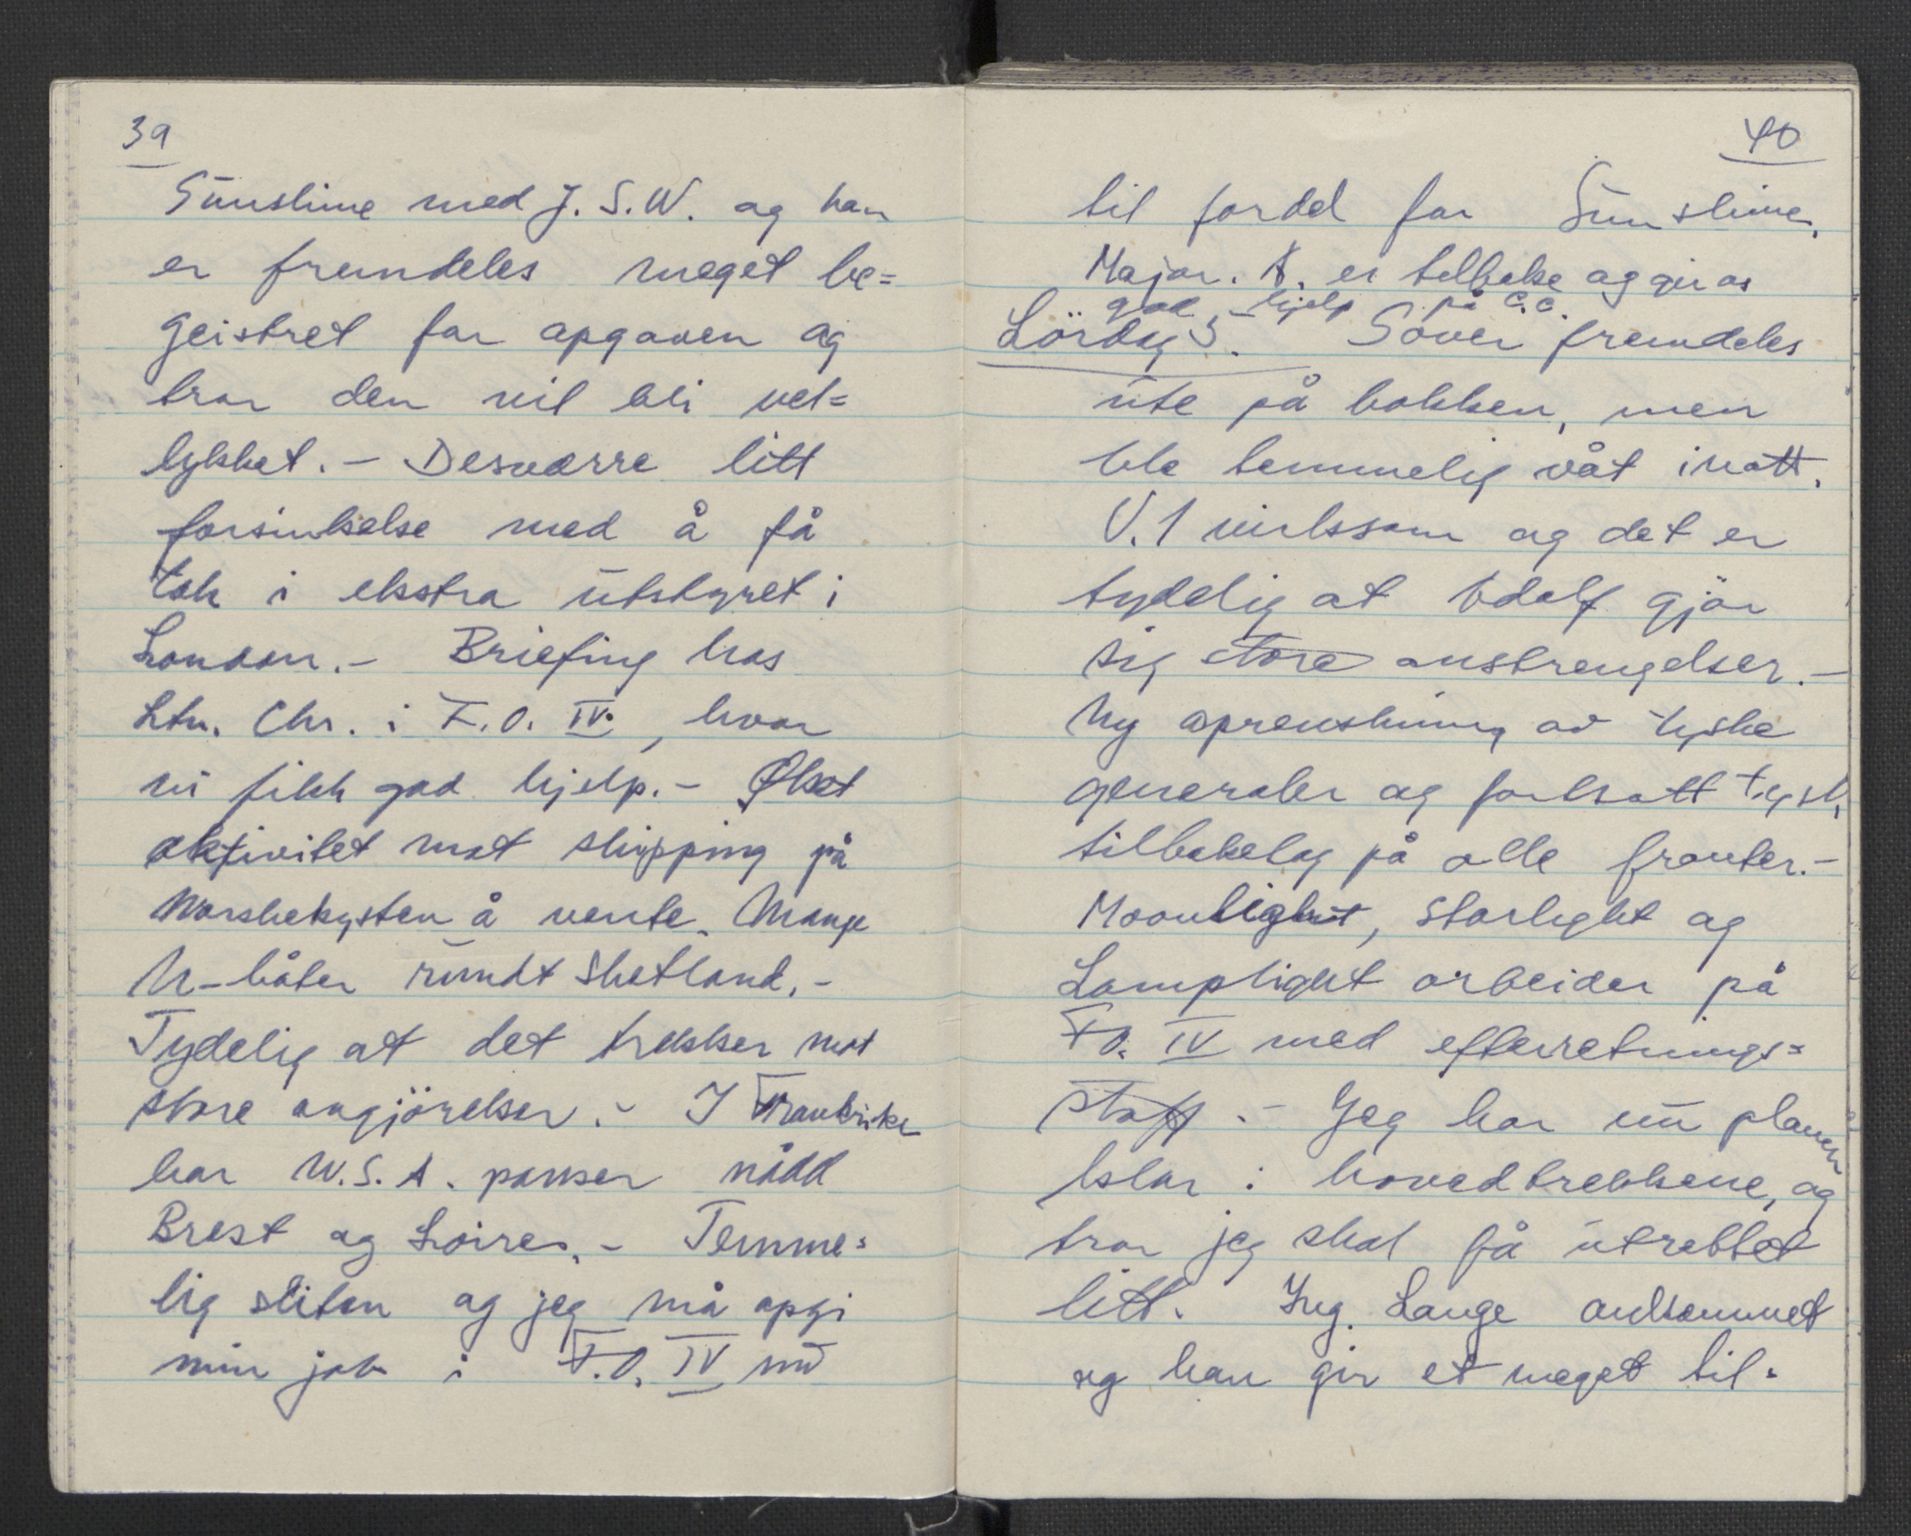 39
Sunshine med J. S. W. og han
er fremdeles meget be=
geistret for opgaven og
tror den vil bli vel=
lykket. – Desværre litt
forsinkelse med å få
tak i ekstra utstyret i
London. – Briefing hos
Ltn. Chr. i F.O. IV, hvor
vi fikk god hjelp. – Øket
aktivitet mot shipping på
Norskekysten å vente. Mange
U-båter rundt Shetland. –
Tydelig at det trekker mot
store avgjörelser. – I Frankrike
har U.S.A. panser nådd
Brest og Loire. – Temme=
lig sliten og jeg må opgi
min job i F.O. IV nu
40
til fordel for Sunshine.
Major. A. er tilbake og gir os
god hjelp på C.C.
Lördag 5. Sover fremdeles
ute på bakken, men
ble temmelig våt inatt.
V.1 virksom og det er
tydelig at Adolf gjör
sig store anstrengelser. –
Ny oprenskning av tyske
generaler og fortsatt tysk
tilbakelag på alle fronter. –
Moonlight, Starlight og
Lamplight arbeider på
F.O. IV med efterretnings=
stoff. – Jeg har nu planen
klar i hovedtrekkene, og
tror jeg skal få utrettet
litt. Ing. Lange ankommet
og han gir et meget til=